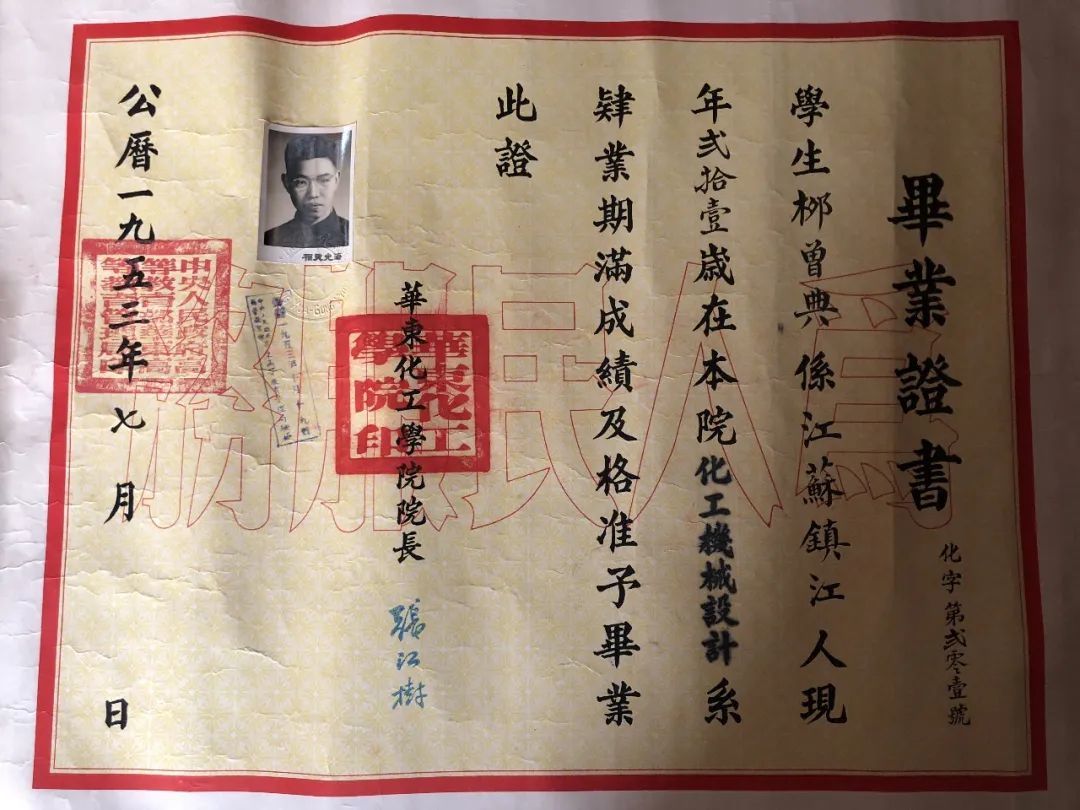 畢業證書
化字第弍零壹號
學生柳曾典係江蘇鎮江人現
年弍拾壹歲在本院化工機械設計系
肄業期滿成績及格准予畢業
此證
華東化工學院院長 張江樹
華東化工
學院印
公曆一九五三年七月 日
爲人民服務